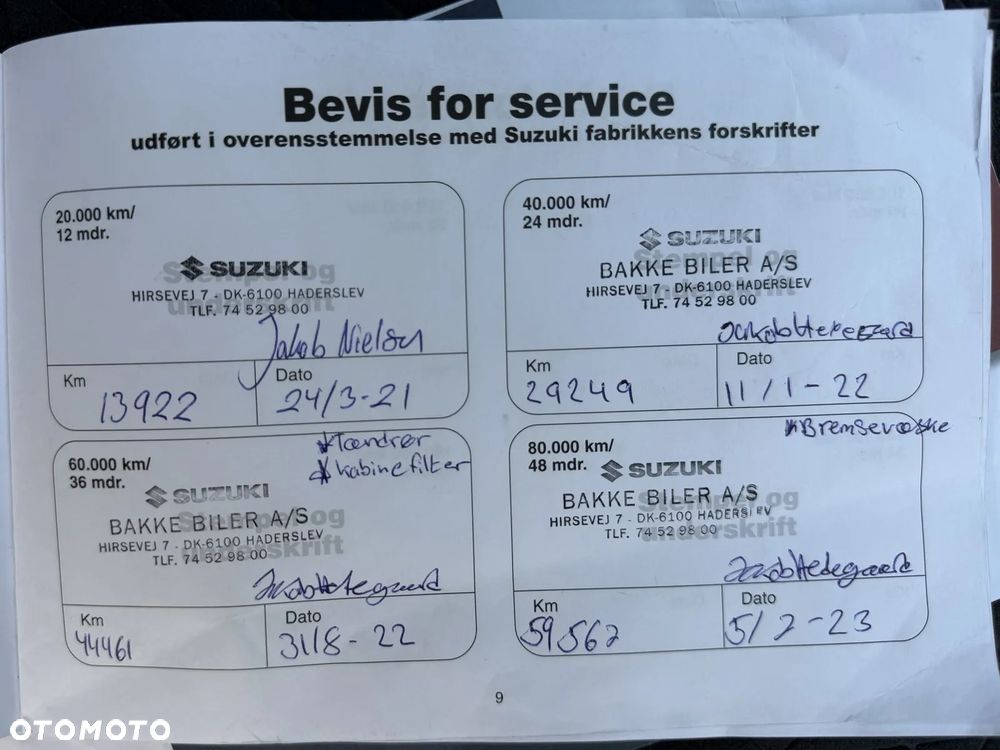 Bevis for service
udført i overensstemmelse med Suzuki fabrikkens forskrifter
20.000 km/
12 mdr.
Stempel og
underskrift
SUZUKI
HIRSEVEJ 7 - DK-6100 HADERSLEV
TLF. 74 52 98 00
Jakob Nielsen
Km
13922
Dato
24/3-21
40.000 km/
24 mdr.
Stempel og
underskrift
SUZUKI
BAKKE BILER A/S
HIRSEVEJ 7 - DK-6100 HADERSLEV
TLF. 74 52 98 00
Km
29249
Dato
11/1-22
60.000 km/
36 mdr.
*Tændrør
*kabinefilter
Stempel og
underskrift
SUZUKI
BAKKE BILER A/S
HIRSEVEJ 7 - DK-6100 HADERSLEV
TLF. 74 52 98 00
Jakob Hedegaard
Km
44461
Dato
31/8-22
80.000 km/
48 mdr.
*Bremsevæske
Stempel og
underskrift
SUZUKI
BAKKE BILER A/S
HIRSEVEJ 7 - DK-6100 HADERSLEV
TLF. 74 52 98 00
Jakob Hedegaard
Km
59562
Dato
5/7-23
9
OTOMOTO